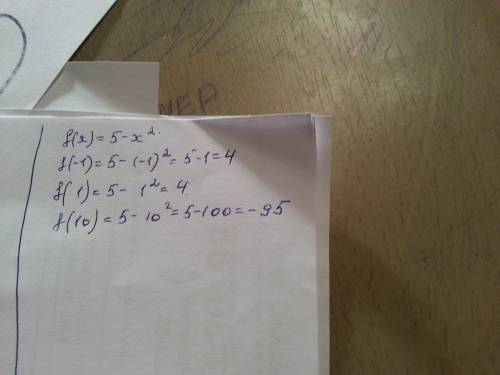 МЕР
f(x) = 5 - x².
f(-1) = 5 - (-1)² = 5 - 1 = 4
f(1) = 5 - 1² = 4
f(10) = 5 - 10² = 5 - 100 = -95